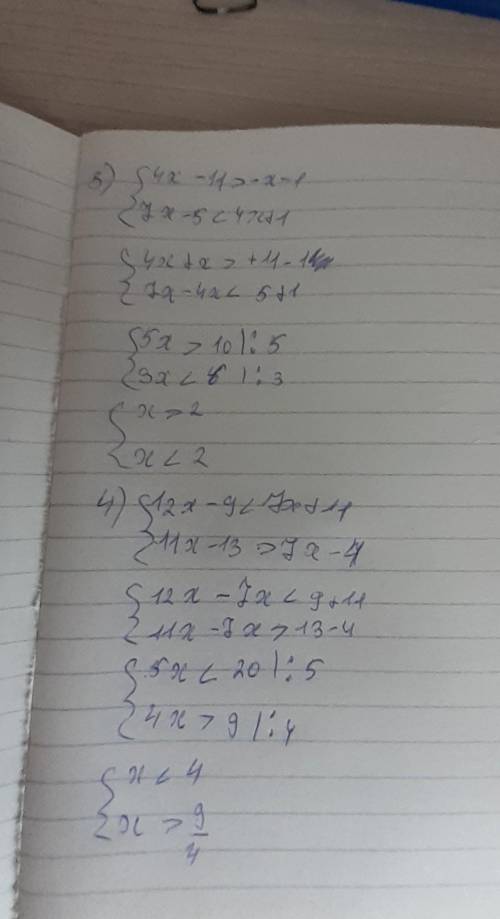 3) { 4x - 11 > -x - 1
{ 7x - 5 < 4x + 1
{ 4x + x > +11 - 1
{ 7x - 4x < 5 + 1
{ 5x > 10 |: 5
{ 3x < 6 |: 3
{ x > 2
{ x < 2
4) { 12x - 9 < 7x + 11
{ 11x - 13 > 7x - 4
{ 12x - 7x < 9 + 11
{ 11x - 7x > 13 - 4
{ 5x < 20 |: 5
{ 4x > 9 |: 4
{ x < 4
{ x > 9/4